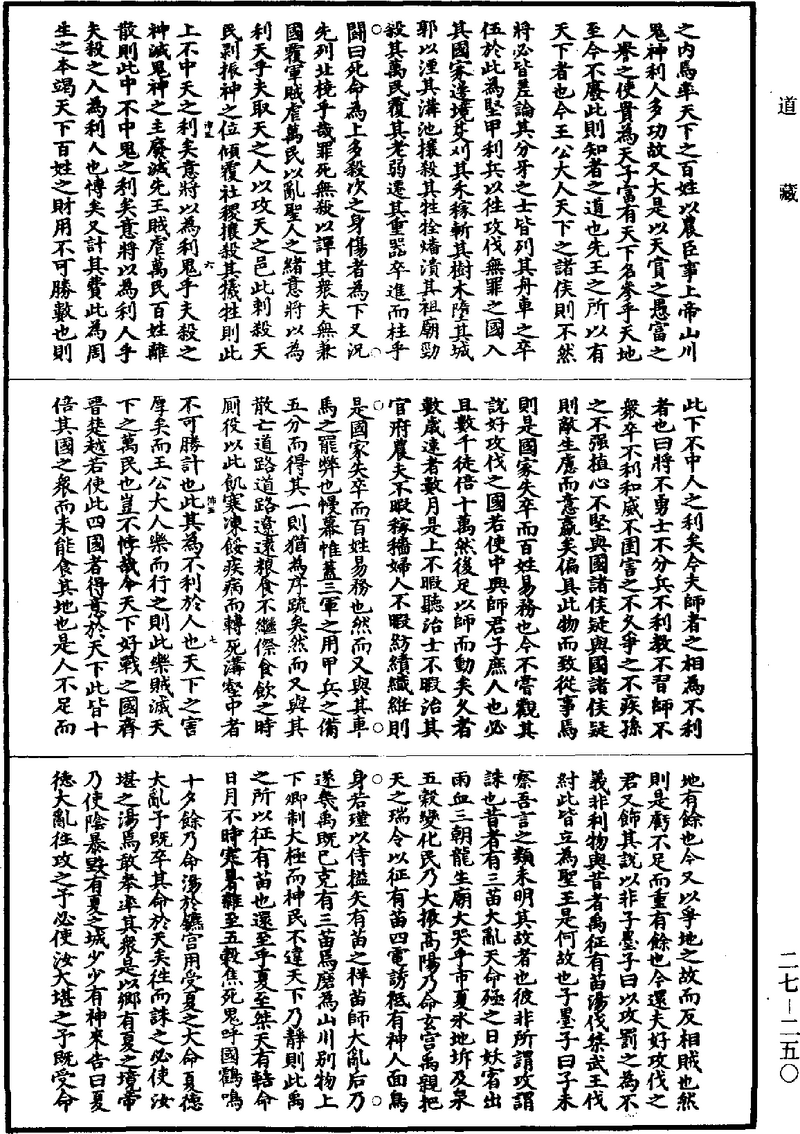 道藏
之内焉率天下之百姓以農臣事上帝山川
鬼神利人多功故又大是以天賞之愚富之
人譽之使貴為天子富有天下名參乎天地
至今不廢此則知者之道也先王之所以有
天下者也今王公大人天下之諸侯則不然
將必皆差論其分牙之士皆列其舟車之卒
伍於此為堅甲利兵以往攻伐無罪之國入
其國家邊境芟刈其禾稼斬其樹木墮其城
郭以湮其溝池攘殺其牲牷燔潰其祖廟勁
殺其萬民覆其老弱遷其重器卒進而柱乎
鬭曰死命為上多殺次之身傷者為下又況
先列北橈乎哉罪死無殺以譂其衆夫無兼
國覆軍賊虐萬民以亂聖人之緒意將以為
利天乎夫取天之人以攻天之邑此刺殺天
民剥振神之位傾覆社稷攘殺其犧牲則此
六
上不中天之利矣意將以為利鬼乎夫殺之
神滅鬼神之主廢滅先王賊虐萬民百姓離
散則此中不中鬼之利矣意將以為利人乎
夫殺之人為利人也博矣又計其費此為周
生之本竭天下百姓之財用不可勝數也則
此下不中人之利矣今夫師者之相為不利
者也曰將不勇士不分兵不利教不習師不
衆卒不利和威不圉害之不久爭之不疾孫
之不强植心不堅與國諸侯疑與國諸侯疑
則敵生慮而意羸矣偏具此物而致從事焉
則是國家失卒而百姓易務也今不嘗觀其
說好攻伐之國若使中興師君子庶人也必
且數千徒倍十萬然後足以師而動矣久者
數歲速者數月是上不暇聽治士不暇治其
官府農夫不暇稼穡婦人不暇紡績織絍則
是國家失卒而百姓易務也然而又與其車
馬之罷弊也幔幕帷蓋三軍之用甲兵之備
五分而得其一則猶為序疏矣然而又與其
散亡道路道路遼遠粮食不繼傺食飲之時
厠役以此飢寒凍餒疾病而轉死溝壑中者
七
不可勝計也此其為不利於人也天下之害
厚矣而王公大人樂而行之則此樂賊滅天
下之萬民也豈不悖哉今天下好戰之國齊
晉楚越若使此四國者得意於天下此皆十
倍其國之衆而未能食其地也是人不足而
地有餘也今又以爭地之故而反相賊也然
則是虧不足而重有餘也今還夫好攻伐之
君又飾其說以非子墨子曰以攻罰之為不
義非利物與昔者禹征有苗湯伐桀武王伐
紂此皆立為聖王是何故也子墨子曰子未
察吾言之類未明其故者也彼非所謂攻謂
誅也昔者有三苗大亂天命殛之日妖宵出
雨血三朝龍生廟犬哭乎市夏氷地坼及泉
五穀變化民乃大振高陽乃命玄宮禹親把
天之瑞令以征有苗四電誘袛有神人面鳥
身若瑾以侍搤矢有苗之祥苗師大亂后乃
遂幾禹既已克有三苗焉磨為山川别物上
下卿制大極而神民不違天下乃靜則此禹
之所以征有苗也還至乎夏王桀天有轄命
日月不時寒暑雜至五穀焦死鬼呼國鶴鳴
十夕餘乃命湯於鑣宫用受夏之大命夏德
大亂予既卒其命於天矣往而誅之必使汝
堪之湯焉敢奉率其衆是以鄉有夏之境帝
乃使陰暴毁有夏之城少少有神來告曰夏
德大亂往攻之予必使汝大堪之予既受命
二七-二五〇